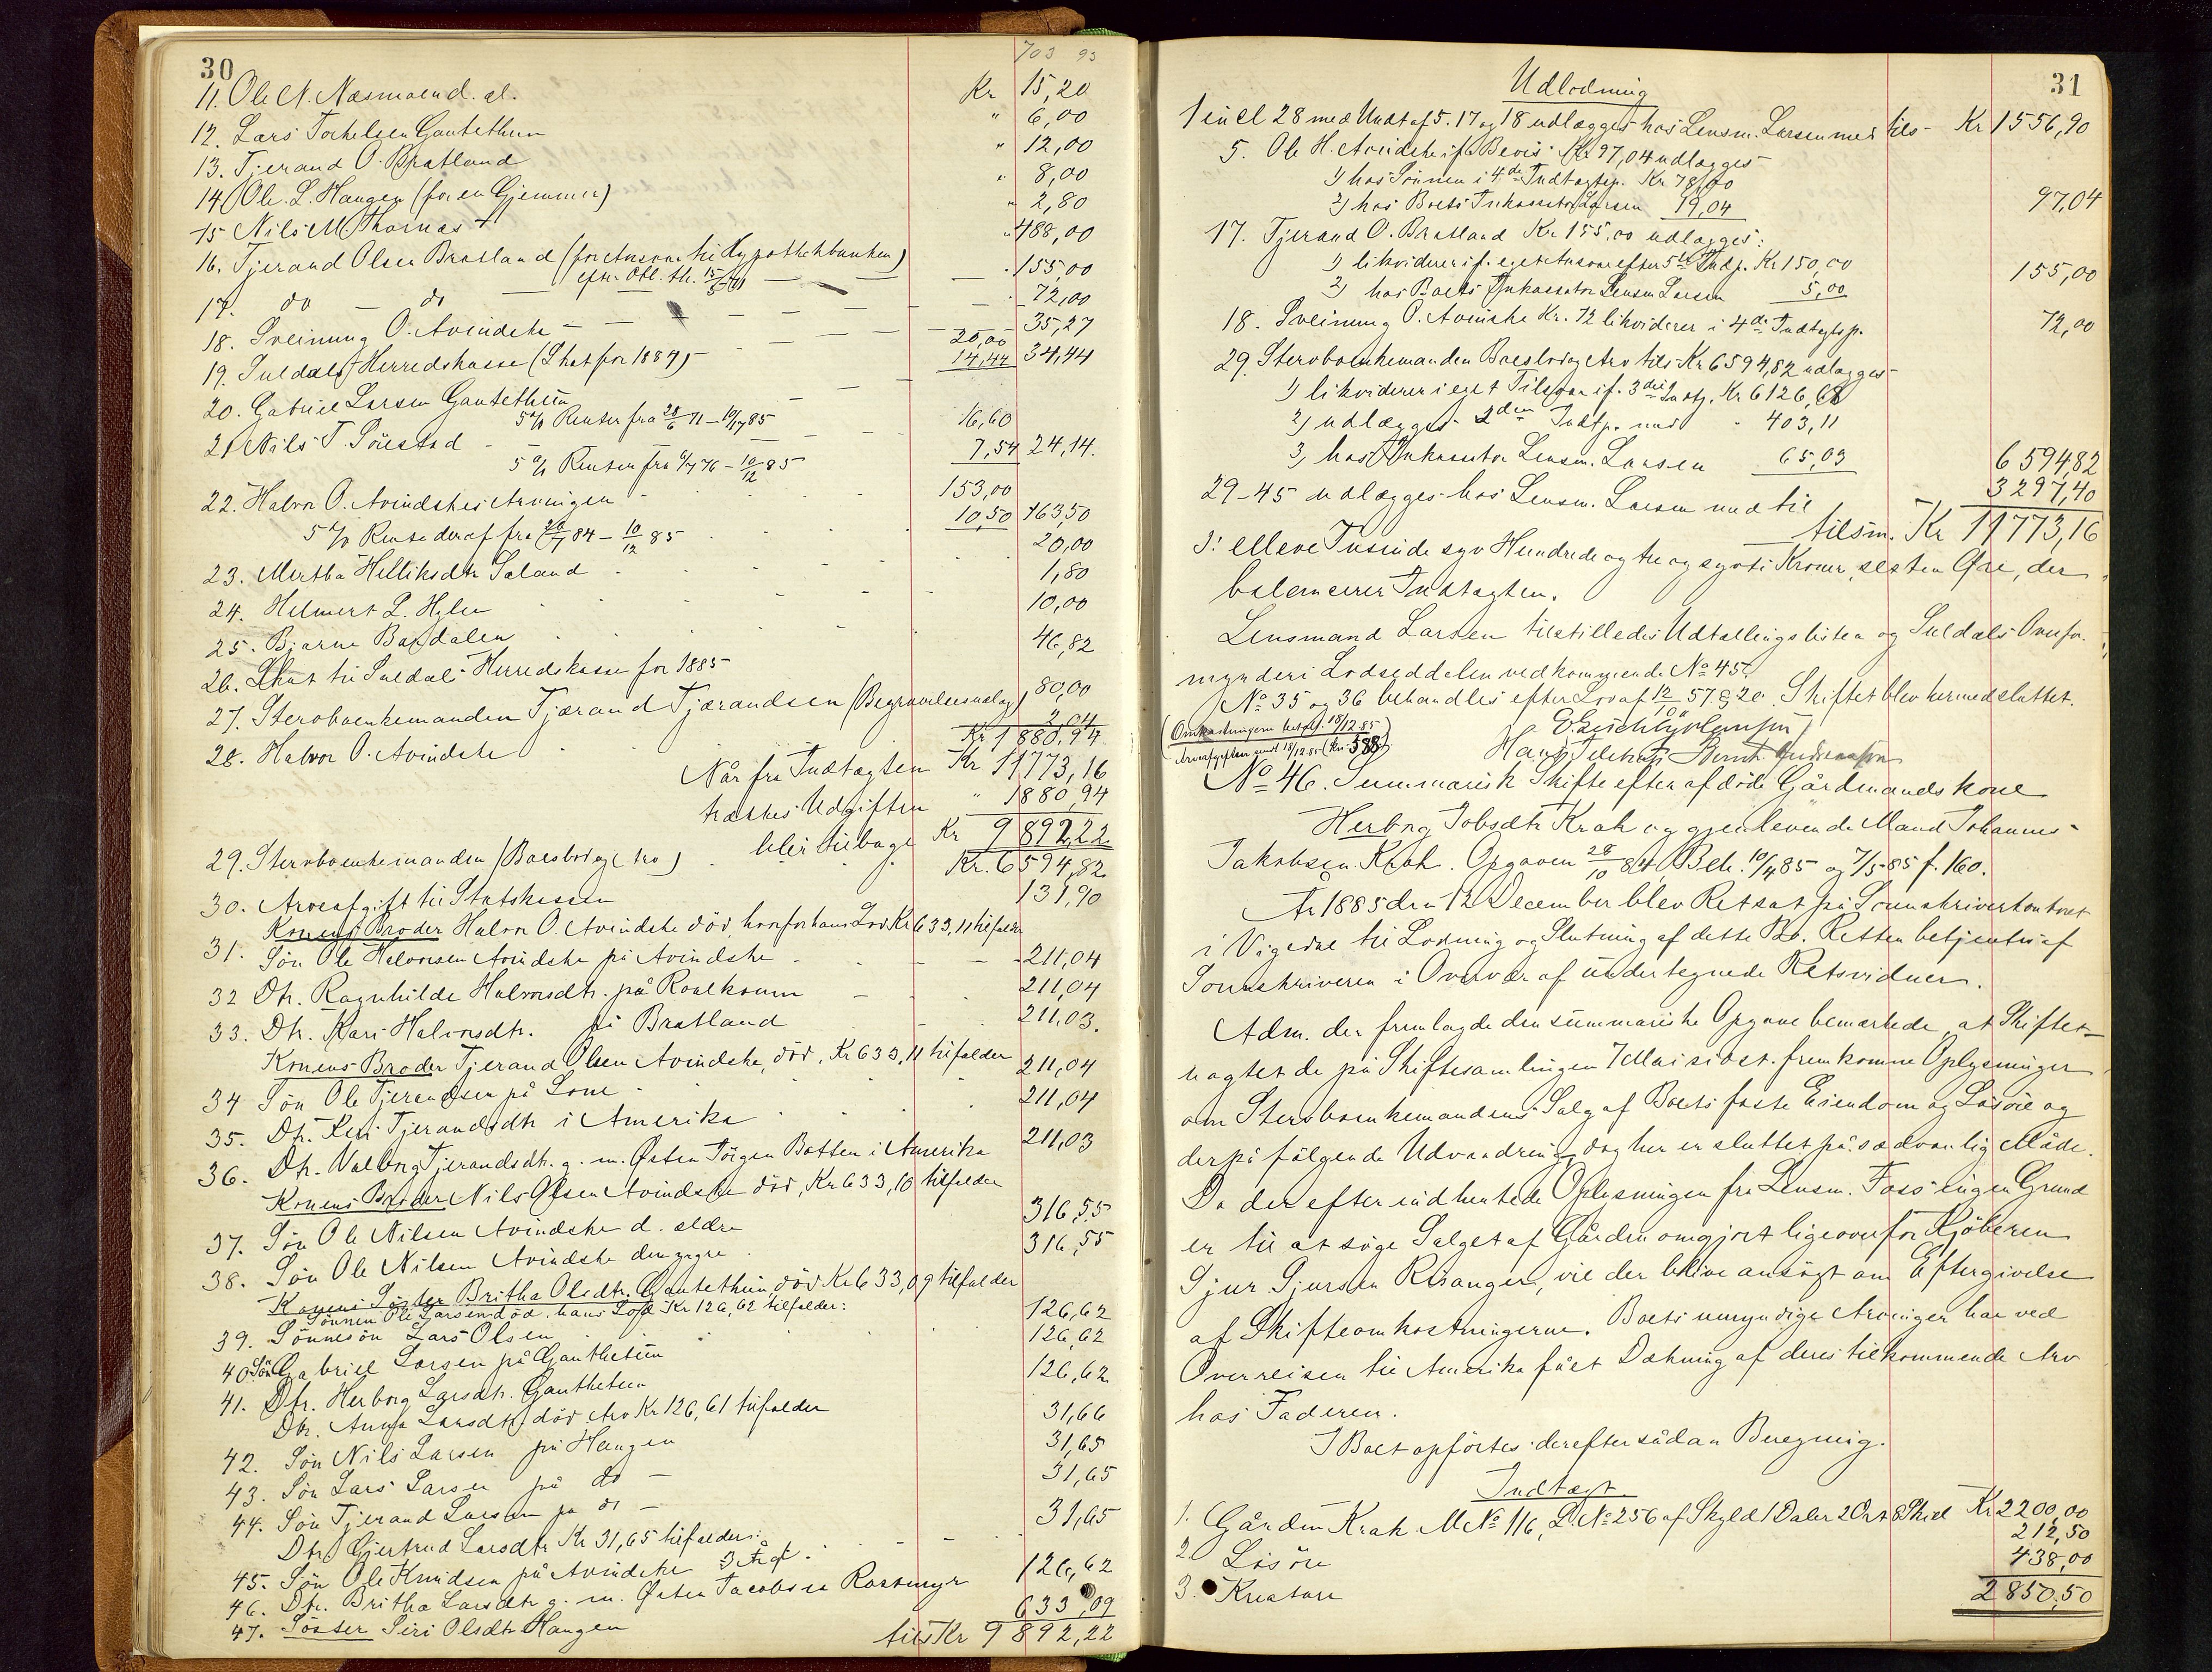 30
703 93
11. Ole N. Næsmoen d. æl. Kr 15,20
12. Lars Torkelsen Gautethun " 6,00
13. Tjerand O. Bratland " 12,00
14. Ole L. Haugen (for en Gjemmer) " 8,00
15 Nils M Thornæs " 2,80
16. Tjerand Olsen Bratland (for Ansvar til Hypothekbanken) " 488,00
17. do — do efter Obl. th. 155,00
18. Sveinung O. Avindske — 72,00
19. Suldals Herredskasse (Skat for 1884) — 35,27
20. Gabriel Larsen Gautethun 20,00
5% Renter fra 14,44 34,44
21 Nils T. Söiestad 16,60
5% Renter fra 7,54 24,14.
22. Halvor O. Avindskes Arvinger 153,00
5% Rente deraf fra 84 – 10/12 85 10,50 163,50
23. Mertha Helliksdtr Saland 20,00
24. Helmert L. Hylen 1,80
25. Bjarne Bardalen 10,00
26. Skat til Suldals Herredskasse for 1885 46,82
27. Stervboenkemanden Tjærand Tjærandsen (Begravelsesudlæg) 80,00
28. Halvor O. Avindske 2,04
Kr 1 880,94
Når fra Indtægten Kr 11773,16
trækkes Udgiften " 1880,94
blir tilbage Kr 9 892,22
29. Stervboenkemanden (Boeslod og Arv) Kr. 6594,82
30. Arveafgift til Statskassen 131,90
Konens Broder Halvor O. Avindske död, hvorfor hans Lod Kr 633,11 tilfalder
31. Sön Ole Halvorsen Avindske på Avindske 211,04
32 Dtr. Ragnhilde Halvorsdtr. på Roalkvam 211,04
33. Dtr. Kari Halvorsdtr. på Bratland 211,03.
Konens Broder Tjerand Olsen Avindske, död, Kr 633,11 tilfalder
34 Sön Ole Tjerandsen på Lone 211,04
35. Dtr. Kari Tjerandsdtr i Amerika 211,04
36. Dtr. Valborg Tjerandsdtr. g. m. Østen Törgen Botten i Amerika 211,03
Konens Broder Nils Olsen Avindske död, Kr 633,10 tilfalder
37. Sön Ole Nilsen Avindske d. ældre 316,55
38. Sön Ole Nilsen Avindske den yngre 316,55
Konens Söster Britha Olsdtr. Gautethun, död, Kr 633,09 tilfalder
Sönnen Ole Larsen död, hans Lod Kr 126,62 tilfalder:
39. Sönnesön Lars Olsen 126,62
40 Sön Gabriel Larsen på Gauthetun 126,62
41. Dtr. Herborg Larsdtr. Gauthetun 126,62
Dtr. Anna Larsdtr död Arv Kr 126,61 tilfalder
42. Sön Nils Larsen på Haugen 31,66
43. Sön Lars Larsen på do 31,65
44. Sön Tjerand Larsen på do — 31,65
Dtr. Gjertrud Larsdtr Kr 31,65 tilfalder:
45. Sön Ole Knudsen på Avindske 3 År gl. 31,65
46. Dtr. Britha Larsdtr g. m. Østen Jacobsen 126,62
47. Söster Siri Olsdtr Haugen 633,09
tils Kr 9 892,22
31
Udlodning
1 incl 28 med Undt af 5. 17 og 18 udlægges hos Lensm. Larsen med tils – Kr 1556,90
5. Ole H. Avindske if. Bevis Kr 97,04 udlægges
1) hos Sönnen i 4de Indtægtsp. Kr 78,00
2) hos Boets Inkassator Larsen 19,04 97,04
17. Tjerand O. Bratland Kr 155,00 udlægges:
1) likviderer if. eget Ansvar efter 5te Indp. Kr 150,00
2) hos Boets Inkassator Lensm Larsen 5,00 155,00
18. Sveinung O. Avindske Kr. 72 likviderer i 4de Indtægtsp. 72,00
29. Stervboenkemanden Boeslod og Arv tils Kr 6594,82 udlægges
1) likviderer i eget Tilsvar if. 3die Indtp. Kr 6126,68
2) udlægges 2den Indtp. med " 403,11
3) hos Inkassator Lensm. Larsen 65,03 6594,82
29–45 udlægges hos Lensm. Larsen med til 3297,40
tilsm. Kr 11773,16
J: elleve Tusinde syv Hundrede og tre og sytti Kroner, sexten Øre, der
balancerer Indtægten.
Lensmand Larsen tilstilledes Udtællingslisten og Suldals Overfor-
mynderi Lodseddelen vedkommende No 45.
No 35 og 36 behandles efter Lov af 57 § 20. Skiftet blev hermed sluttet.
(Omkostningerne betalt 18/12 85)
Arveafgiften 18/12 85 (Kr. 588)
Hans Bernt
No 46. Summarisk Skifte efter afdöde Gårdmandskone
Herborg Jobsdtr Krak og gjenlevende Mand Johannes
Jakobsen Krak. Opgaven 28/10 84, Beh. 10/4 85 og 7/5 85 f. 160.
År 1885 den 12 December blev Ret sat på Sorenskriverkontoret
i Vigedal til Lodning og Slutning af dette Bo. Retten betjentes af
Sorenskriveren i Overvær af undertegnede Retsvidner.
Adm. der fremlagde den summariske Opgave bemærkede, at Skiftet
uagtet de på Skiftesamlingen 7 Mai sidst. fremkomne Oplysninger
om Stervboenkemandens Salg af Boets faste Eiendom og Lösöre og
derpå fölgende Udvandring, dog her er sluttet på sædvanlig Måde.
Da der efter indhentede Oplysninger fra Lensm. Foss ingen Grund
er til at söge Salget af Gården omgjort ligeoverfor Kjöberen
Sjur Sjursen Risanger, vil der blive ansögt om Eftergivelse
af Skifteomkostningerne. Boets umyndige Arvinger har ved
Overreisen til Amerika fået Dækning af deres tilkommende Arv
hos Faderen.
I Boet opförtes derefter sådan Beregning.
Indtægt
1. Gården Krak M No 116, L No 256 af Skyld 1 Daler 2 Ort 8 Skil Kr 2200,00
2. Lösöre 212,50
3. Kreature 438,00
2 850,50